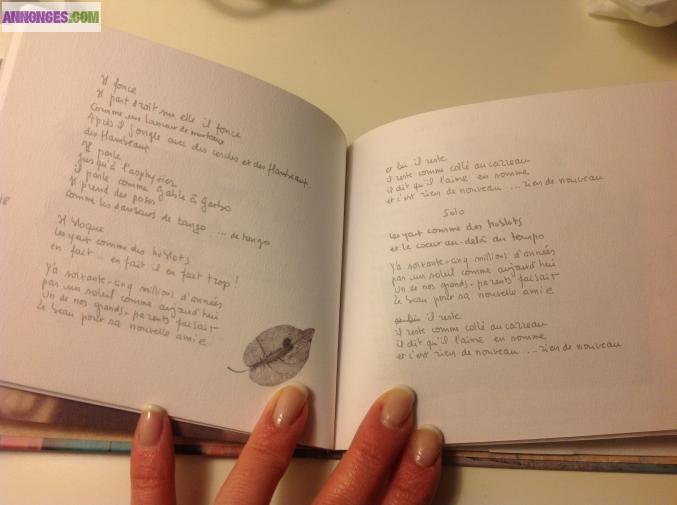 ANNONCES.COM
Il fonce
Il part droit sur elle il fonce
Comme un lanceur de marteaux
Après il jongle avec des cercles et des flambeaux..
des flambeaux
Il parle
jusqu'à l'asphyxier
il parle comme Gable à Garbo
Il prend des poses
comme les danseurs de tango ... de tango
Il bloque
les yeux comme des hublots
en fait .. en fait il en fait trop !
Y'a soixante-cinq millions d'années
par un soleil comme aujourd'hui
Un de nos grands-parents faisait
le beau pour sa nouvelle amie
18
et lui il reste
il reste comme collé au carreau
il dit qu'il l'aime en somme
et c'est rien de nouveau ... rien de nouveau
Solo
les yeux comme des hublots
et le coeur au-delà du tempo
Y'a soixante-cinq millions d'années
par un soleil comme aujourd'hui
Un de nos grands-parents faisait
le beau pour sa nouvelle amie
et lui il reste
il reste comme collé au carreau
il dit qu'il l'aime en somme
et c'est rien de nouveau ... rien de nouveau